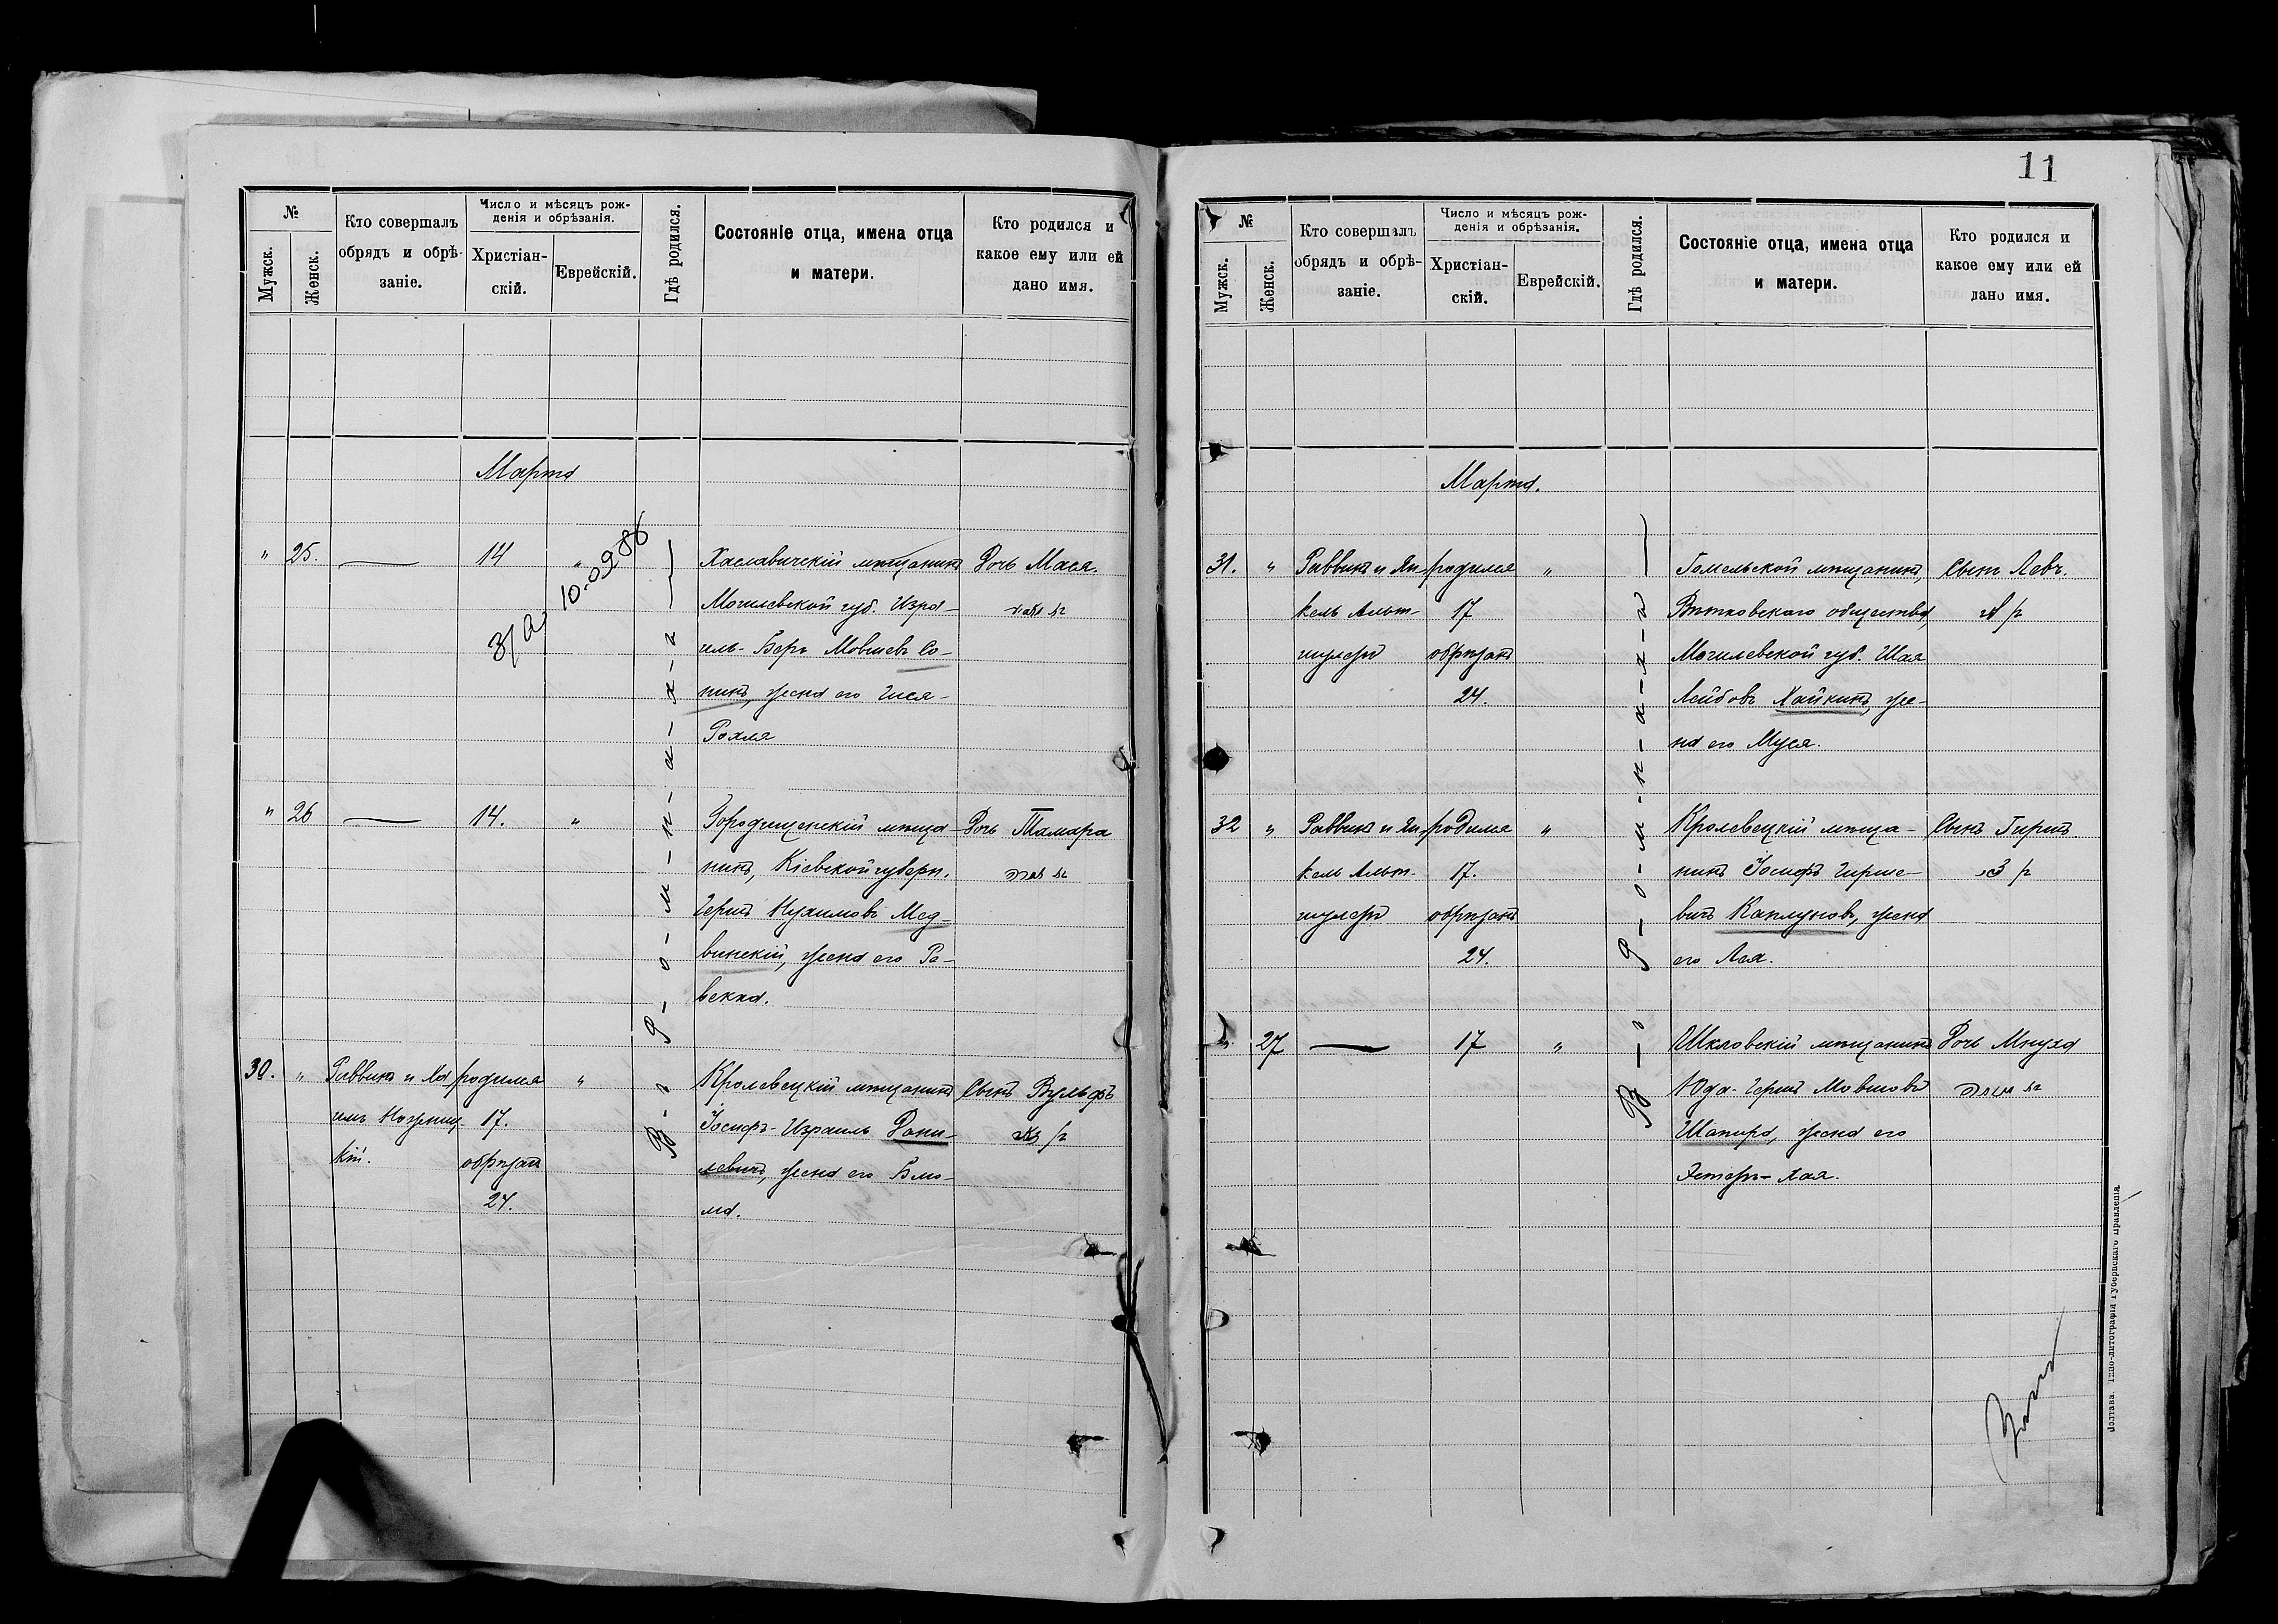 №
Мужск.
Женск.
Кто совершалъ
обрядъ и обрѣ-
заніе.
Число и мѣсяцъ рож-
денія и обрѣзанія.
Христіан-
скій.
Еврейскій.
Гдѣ родился.
Состояніе отца, имена отца
и матери.
Кто родился и
какое ему или ей
дано имя.
Марта
В-г Р-о-м-н-а-х-ъ
" 25. — 14 "
10.09.86
Хаславичскій мѣщанинъ
Могилевской губ. Изра-
иль-Беръ Мовшевъ Со-
нинъ, жена его Гися-
Рохля
Дочь Мася.
" 26 — 14. "
Городищенскій мѣща-
нинъ, Кіевской губерн.
Гершъ Нухимовъ Мед-
винскій, жена его Ре-
векка.
Дочь Тамара
30. " Раввинъ и Ха- родился "
имъ Ноженц- 17.
кій. обрѣзанъ
24.
Кролевецкій мѣщанинъ
Іосифъ-Израиль Дани-
левичъ, жена его Блю-
ма.
Сынъ Вульфъ
11
№
Мужск.
Женск.
Кто совершалъ
обрядъ и обрѣ-
заніе.
Число и мѣсяцъ рож-
денія и обрѣзанія.
Христіан-
скій.
Еврейскій.
Гдѣ родился.
Состояніе отца, имена отца
и матери.
Кто родился и
какое ему или ей
дано имя.
Марта.
В-г Р-о-м-н-а-х-ъ
31. " Раввинъ и Ян- родился "
кель Альт- 17
шулеръ обрѣзанъ
24.
Гомельской мѣщанинъ,
Вѣтковскаго общества,
Могилевской губ. Шая
Лейбовъ Хайкинъ, же-
на его Муся.
Сынъ Левъ.
32 " Раввинъ и Ян- родился "
кель Альт- 17.
шулеръ обрѣзанъ
24.
Кролевецкій мѣща-
нинъ Іосифъ Гирше-
вичъ Каплуновъ, жена
его Лея.
Сынъ Гиршъ
" 27 — 17 "
Шкловскій мѣщанинъ
Юда-Гершъ Мовшовъ
Шапиро, жена его
Эстеръ-Хая.
Дочь Мнуха
Полтава. Типо-литографія Губернскаго Правленія